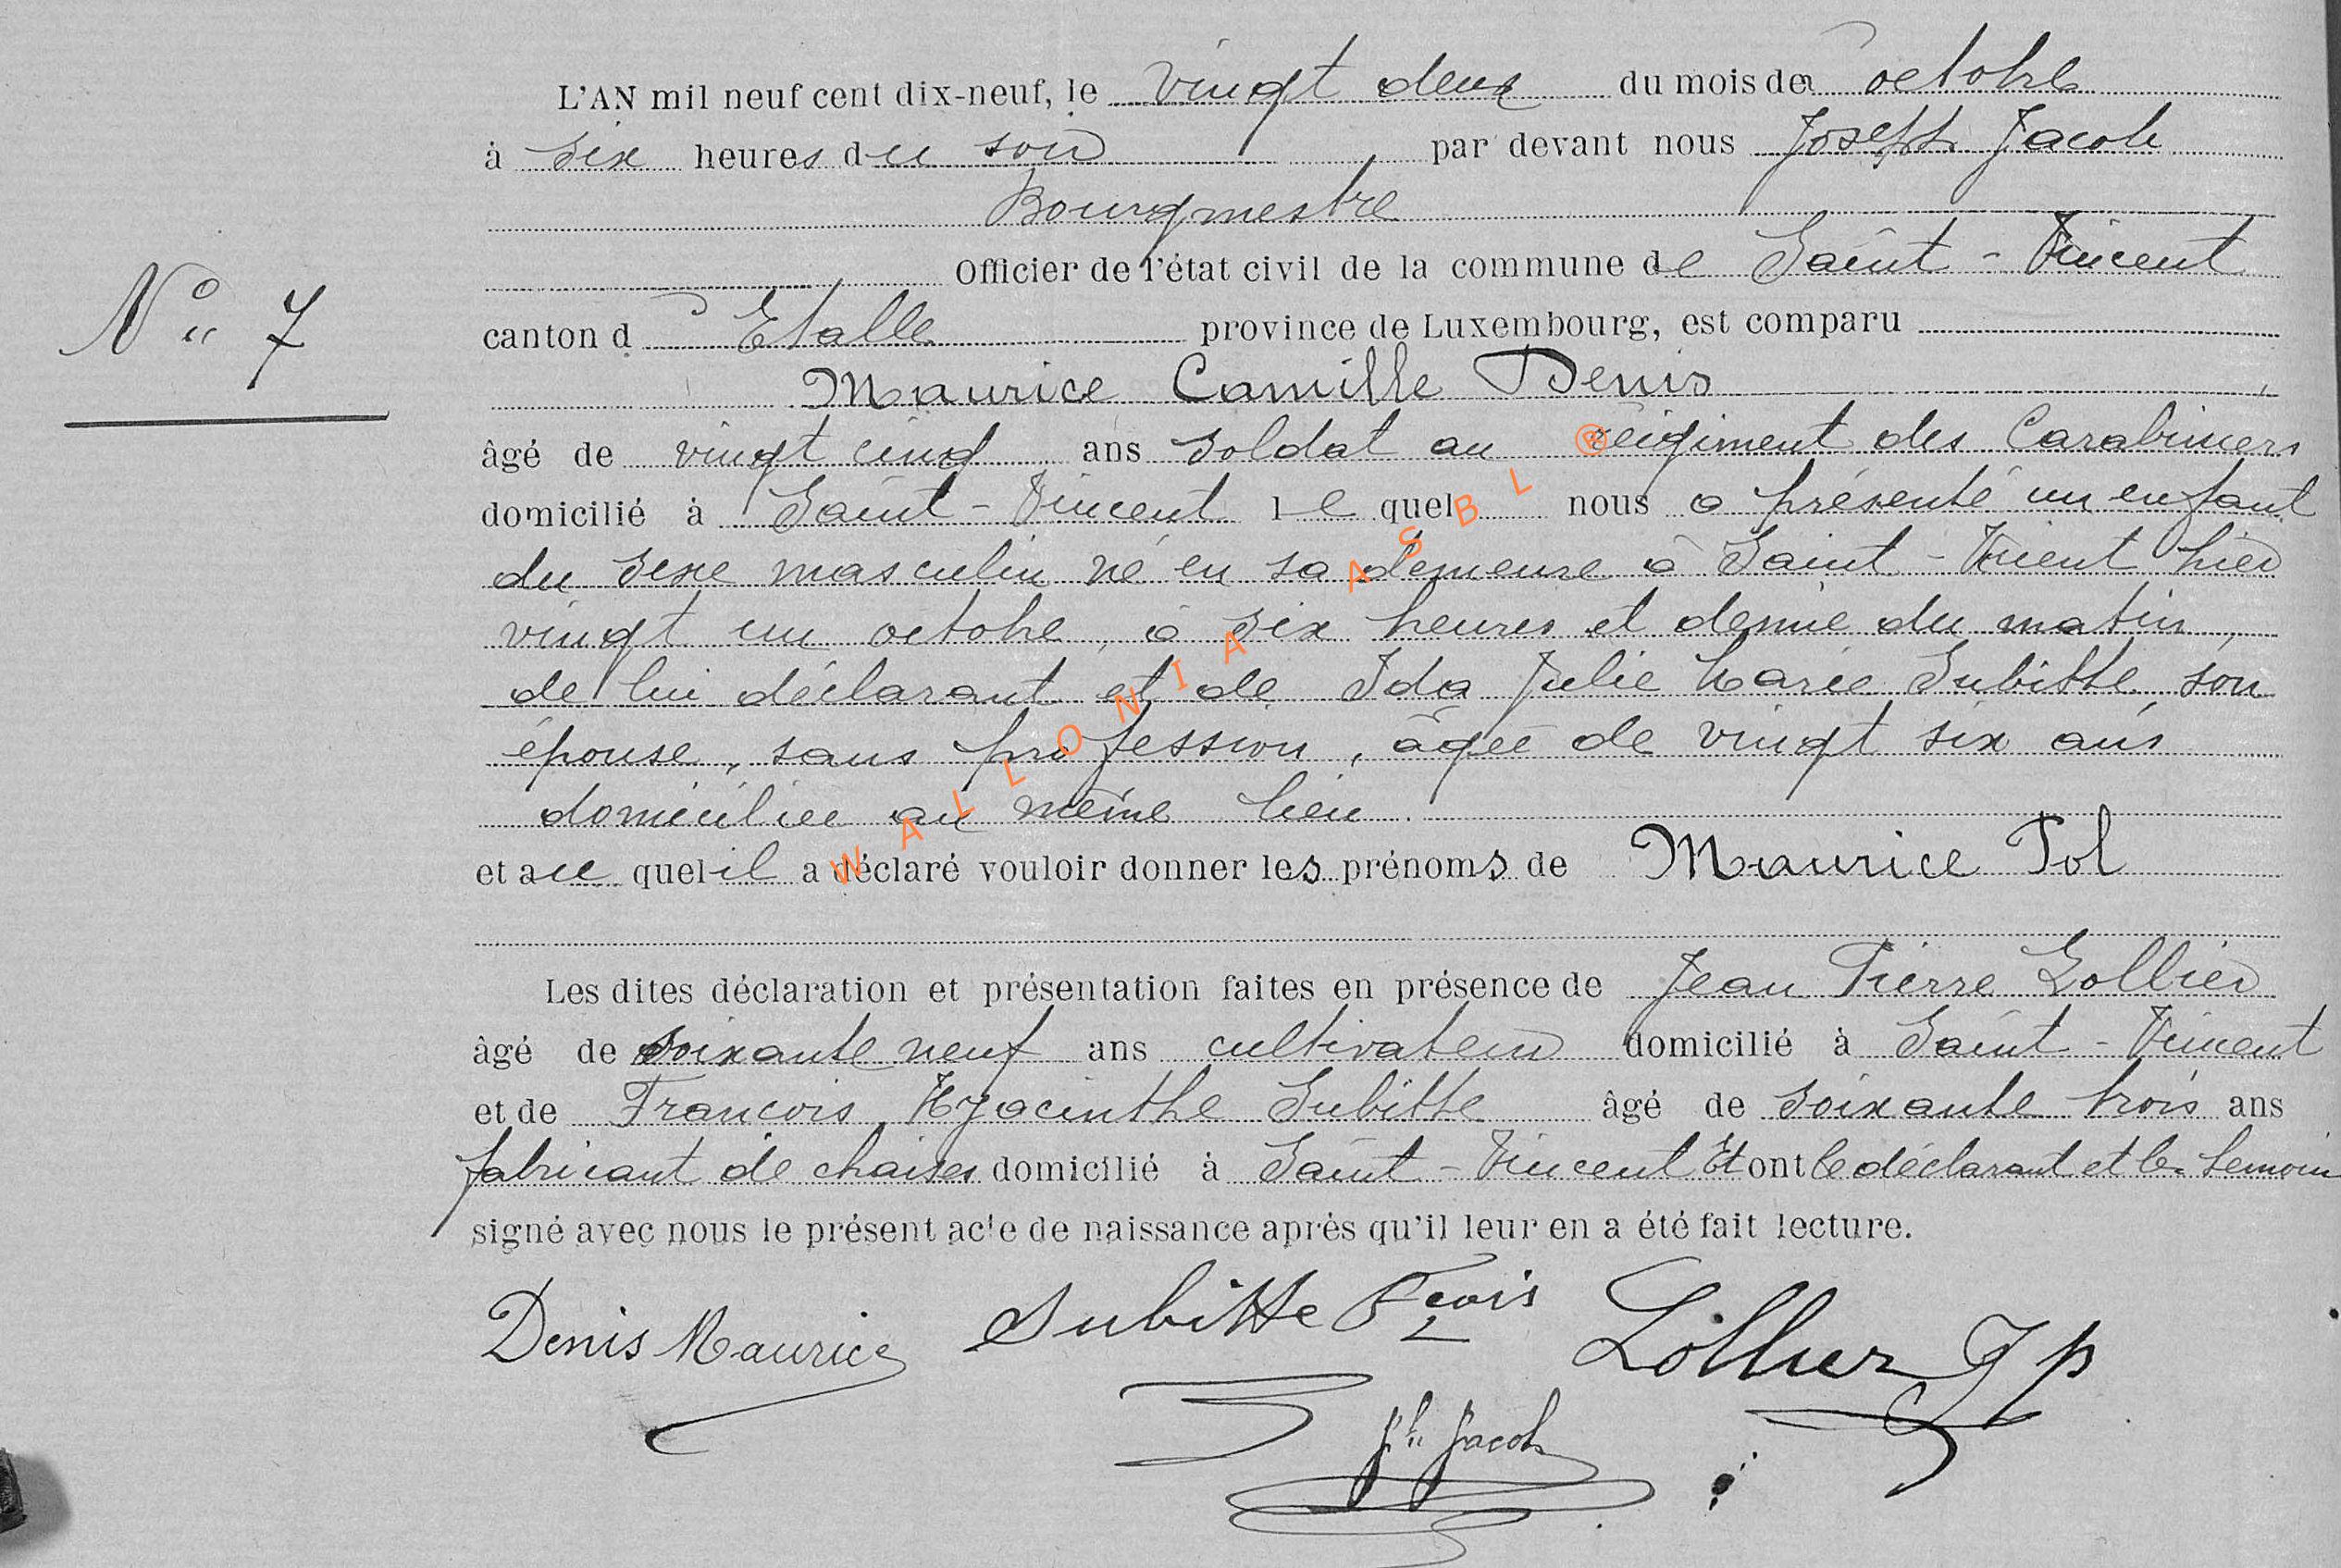 L'AN mil neuf cent dix-neuf, le vingt deux du mois de octobre
à six heures du soir par devant nous Joseph Jacob
Bourgmestre
Officier de l'état civil de la commune de Saint-Vincent
N° 7
canton d'Etalle province de Luxembourg, est comparu
Maurice Camille Denis,
âgé de vingt cinq ans soldat au régiment des Carabiniers
domicilié à Saint-Vincent lequel nous a présenté un enfant
du sexe masculin né en sa demeure à Saint-Vincent hier
vingt un octobre, à six heures et demie du matin,
de lui déclarant et de Ida Julie Marie Subitte, son
épouse, sans profession, âgée de vingt six ans
domiciliée au même lieu.
et auquel il a déclaré vouloir donner les prénoms de Maurice Pol
Les dites déclaration et présentation faites en présence de Jean Pierre Lollier
âgé de soixante neuf ans cultivateur domicilié à Saint-Vincent
et de François Hyacinthe Subitte âgé de soixante trois ans
fabricant de chaises domicilié à Saint-Vincent Et ont le déclarant et les témoins
signé avec nous le présent acte de naissance après qu'il leur en a été fait lecture.
Denis Maurice Subitte Fçois Lollier J p
Jh Jacob
WALLONIA ASBL ®